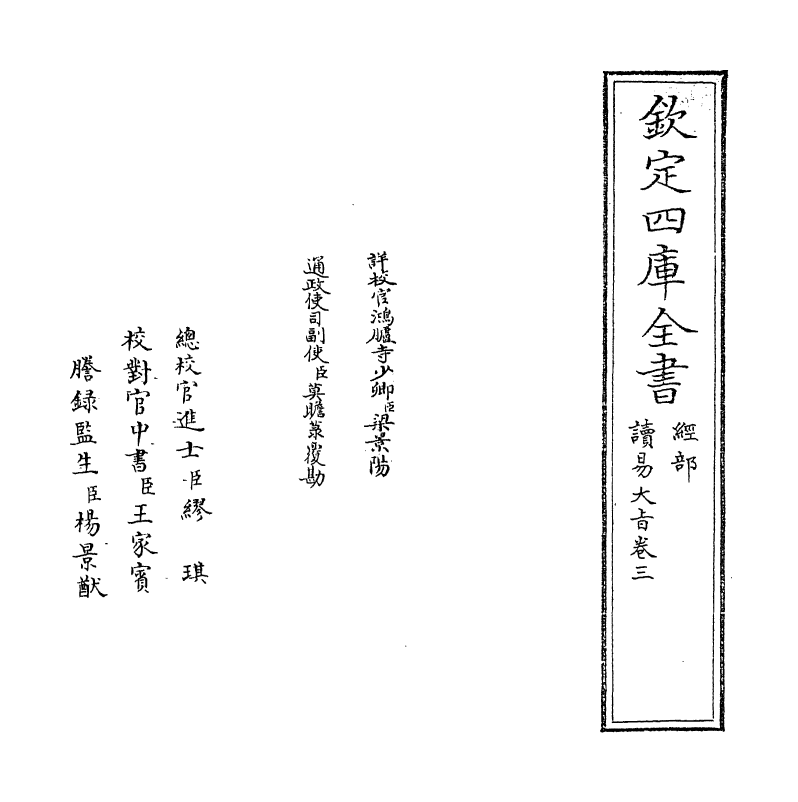 欽定四庫全書
經部
讀易大旨卷三
詳校官鴻臚寺少卿臣梁景陽
通政使司副使臣莫瞻菉覆勘
總校官進士臣繆琪
校對官中書臣王家賓
謄錄監生臣楊景猷